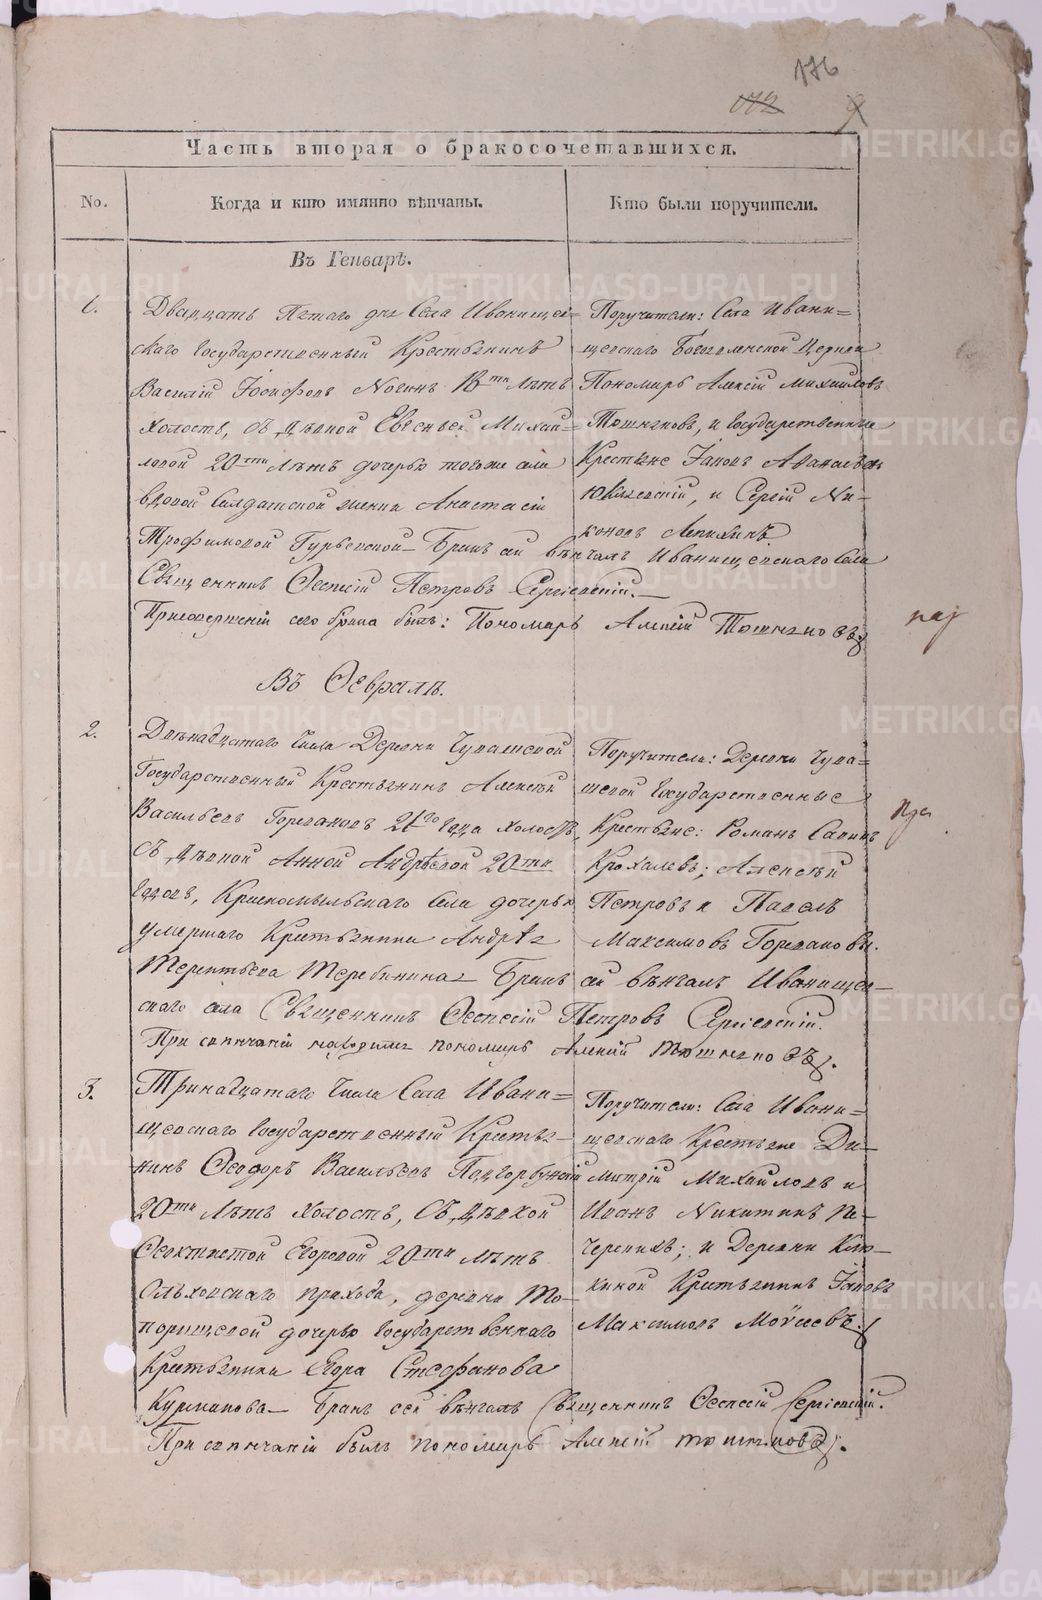 176
172
9
Часть вторая о бракосочетавшихся.
No.
Когда и кто имянно вѣнчаны.
Кто были поручители.
Въ Генварѣ.
1.
Двадцать Пятаго дня Села Иванище-
скаго Государственный Крестьянинъ
Василій Іосифовъ 18ти лѣтъ
Холостъ, съ дѣвкой Евгеньей Михай=
ловой 20ти Лѣтъ дочерью тогоже села
вдовой Салдатской женки Анастасіи
Трофимовой Гурьевской Бракъ сей вѣнчалъ Иванищевскаго Села
Священникъ Петровъ Сергіевскій.
При сего брака былъ: Пономарь Алексій Тюшняковъ
Поручители: Села Ивани=
щевскаго Богоявленской Церкви
Пономарь Алексій Михайловъ
Тюшняковъ, и Государственные
Крестьяне Іаковъ
и Сергій Ни-
коновъ Лепихинъ.
Въ Февралѣ.
2.
Двѣнадцатаго Числа Деревни Чупашевой
Государственный Крестьянинъ Алексѣй
Васильевъ Гордѣановъ 21го Года холостъ
Съ дѣвкой Анной Андрѣевой 20ти
Годовъ, Красномыльскаго Села дочерью
умершаго Крестьянина Андрѣя
Терентьева Теребинина Бракъ сей вѣнчалъ Иванищев-
скаго села Священникъ Петровъ Сергіевскій.
При вѣнчаніи находился пономарь Алексій Тюшняковъ.
Поручители: Деревни Чупа=
шевой Государственные
Крестьяне: Романъ Савинъ
Крохалевъ; Алексѣй
Петровъ и Павелъ
Максимовъ
3.
Тринадцатаго Числа Села Ивани=
щевскаго Государственный Крестья-
нинъ Ѳеодоръ Васильевъ Подгорбунскій
20ти Лѣтъ Холостъ, Съ дѣвкой
Ѳеоктистой Егоровой 20ти лѣтъ
Ольховскаго прихода, деревни То-
порищевой дочерью Государственнаго
Крестьянина Егора Стефанова
Курманова Бракъ сей вѣнчалъ Священникъ Сергіевскій.
При вѣнчаніи былъ пономарь Алексѣй Тюшняковъ.
Поручители: Села Ивани=
щевскаго Крестьяне Ди-
митрій Михайловъ и
Иванъ Никитинъ Пе-
черкинъ; и Деревни Клю-
киной Крестьянинъ Іаковъ
Максимовъ Моѵсеевъ.
METRIKI.GASO-URAL.RU